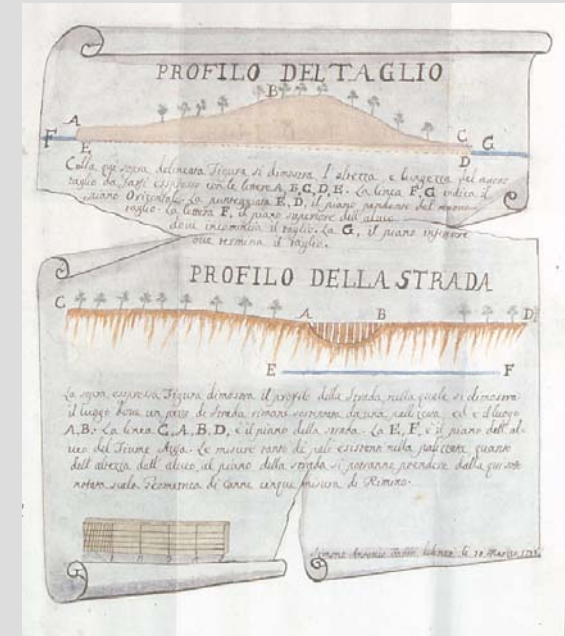 PROFILO DEL TAGLIO
B
A
F
E
C
G
D
Colla qui sopra delineata Figura si dimostra l'altezza, e lungezza del nuovo
taglio da farsi espresso con le lettere A, B, C, D, E. La linea F, G indica il
piano Orizontale. La punteggiata E, D, il piano pendente del nuovo
taglio. La lettera F, il piano superiore dell'alveo
dove incomincia il taglio. La G, il piano inferiore
ove termina il taglio.
PROFILO DELLA STRADA
C
A
B
D
E
F
La sopra espressa Figura dimostra il profilo della Strada, nella quale si dimostra
il luogo dove un pezzo di strada rimane sostenuta da una ed è il luogo
A, B. La linea C, A, B, D, è il piano della strada. La E, F, è il piano dell'al-
veo del Fiume. Le misure tanto di pali esistenti nella palizzata, quanto
dell'altezza dall'alveo, al piano della strada si potranno prendere dalla qui sotto
notata scala Geometrica di Canne cinque misura di Rimino.
Simone Antonio li 10 Marzo